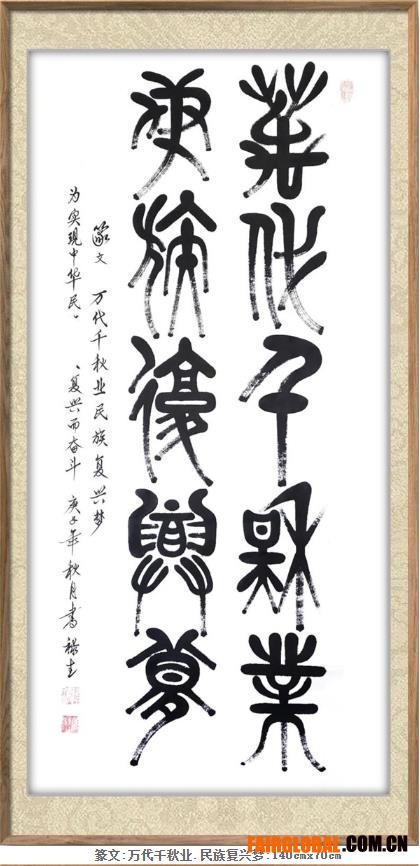 萬代千秋業
民族復興夢
篆文 万代千秋业民族复兴梦
为实现中华民、、复兴而奋斗 庚子年秋月書
篆文:万代千秋业.民族复兴梦.140cmx70cm
FAIRGLOBAL.COM.CN